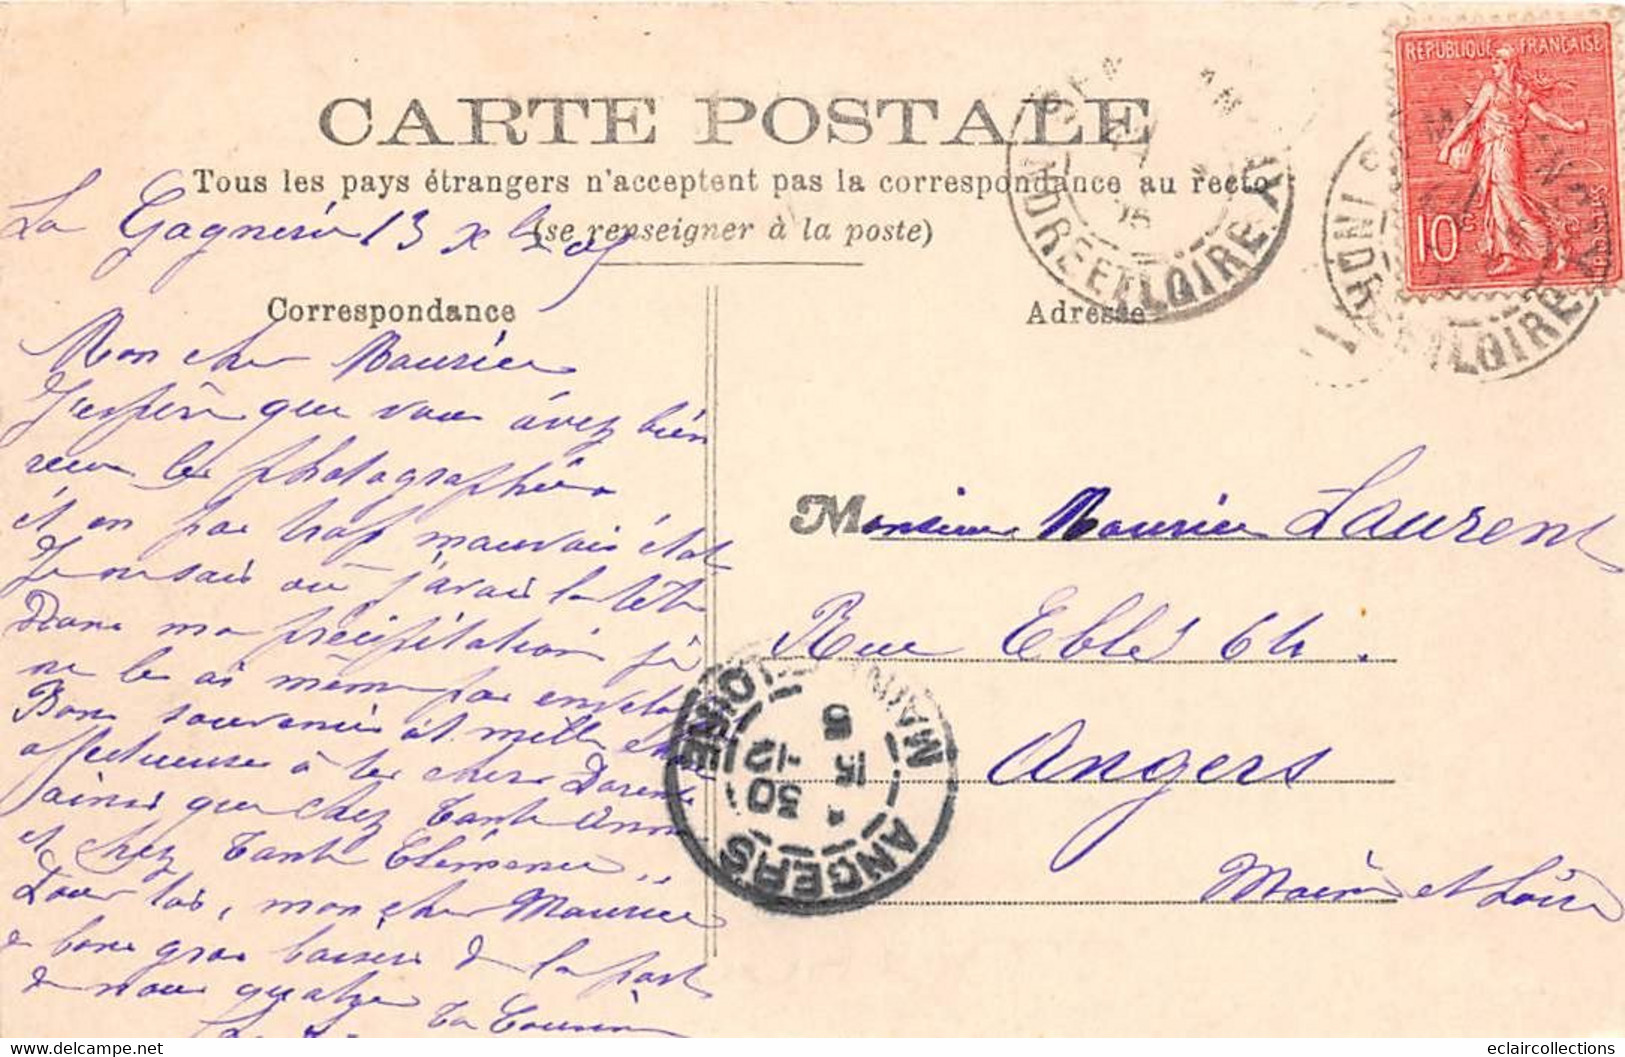 CARTE POSTALE
Tous les pays étrangers n'acceptent pas la correspondance au recto
(se renseigner à la poste)
La Gagnerie 13 Xbre 05
Correspondance
Adresse
RÉPUBLIQUE FRANÇAISE
10c
POSTES
INDRE ET LOIRE
INDRE ET LOIRE
Mon cher Maurice
J'espère que vous avez bien
reçu les photographies
et en pas trop mauvais état
Je ne sais où j'avais la tête
Dans ma précipitation je
ne les ai même pas
Bons souvenirs et mille choses
affectueuses à tes chers Parents
ainsi que chez Tante Anna
et chez Tante Clémence..
Pour toi, mon cher Maurice
bons gros baisers de la part
de nous quatre
Ta Cousine
Monsieur Maurice Laurent
Rue Eblé 64.
Angers
Maine et Loire
ANGERS
MAINE ET LOIRE
30
15 -12
eclaircollections